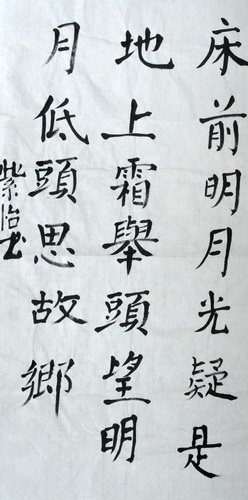 床前明月光疑是
地上霜舉頭望明
月低頭思故鄉
紫怡书